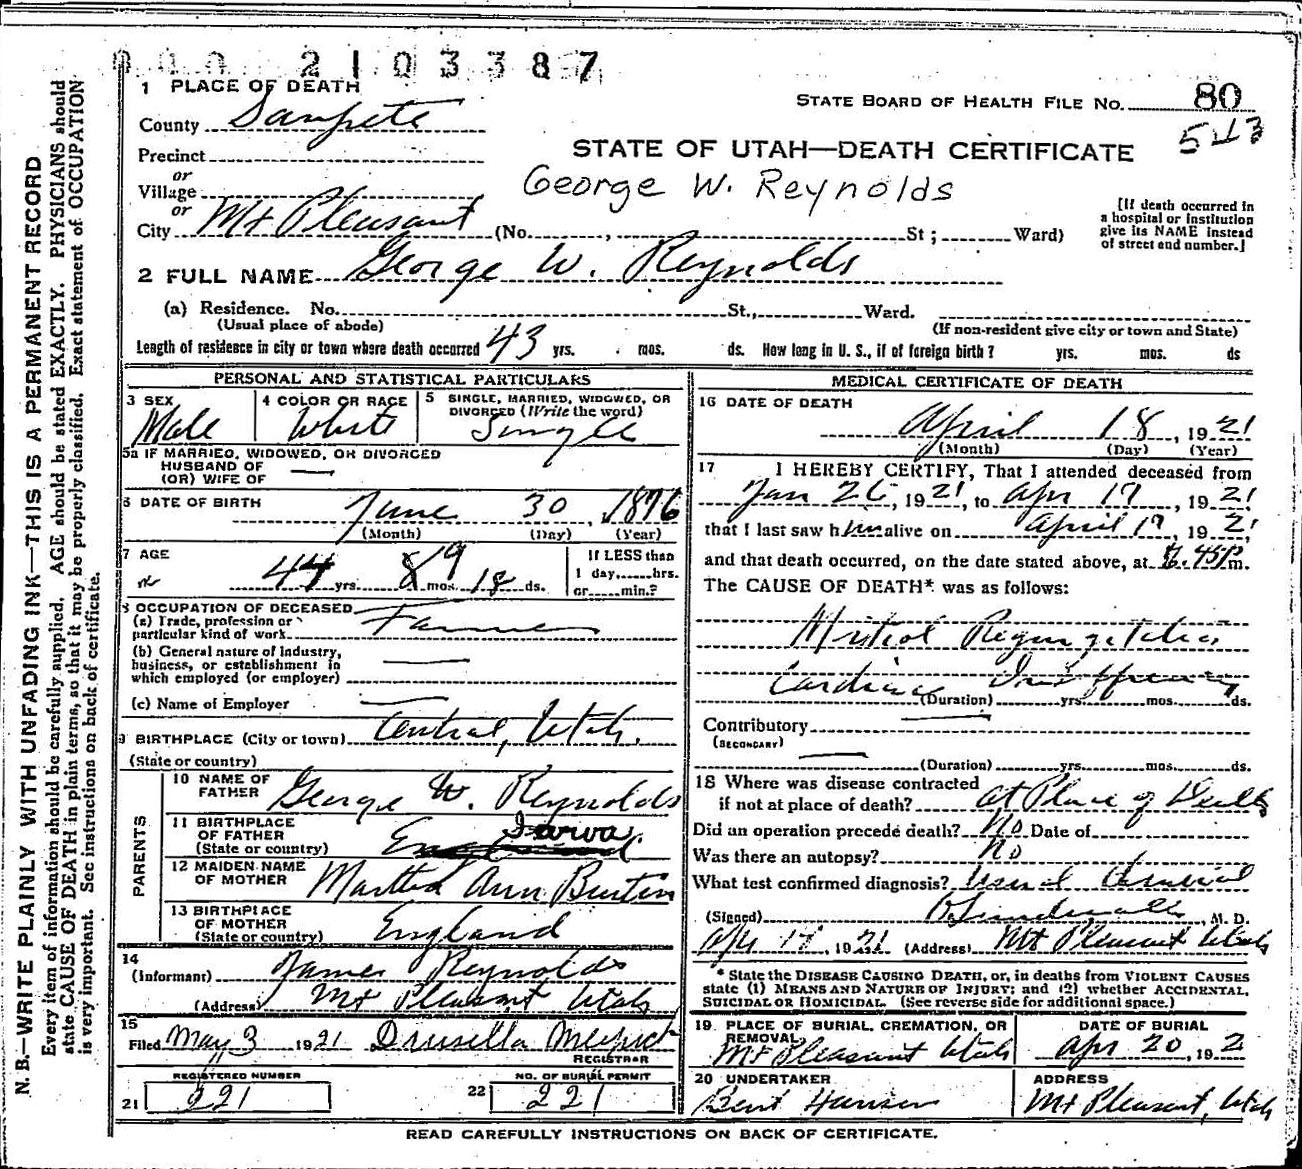 2103387
1 PLACE OF DEATH
STATE BOARD OF HEALTH FILE NO. 80
County Sanpete
543
Precinct
STATE OF UTAH—DEATH CERTIFICATE
or
Village
George W. Reynolds
or
City Mt Pleasant (No. , St ; Ward)
[If death occurred in
a hospital or institution
give its NAME instead
of street and number.]
2 FULL NAME George W. Reynolds
(a) Residence. No. St., Ward.
(Usual place of abode)
(If non-resident give city or town and State)
Length of residence in city or town where death occurred 43 yrs. mos. ds. How long in U. S., if of foreign birth ? yrs. mos. ds
PERSONAL AND STATISTICAL PARTICULARS
3 SEX
Male
4 COLOR OR RACE
White
5 SINGLE, MARRIED, WIDOWED, OR
DIVORCED (Write the word)
Single
5a IF MARRIED, WIDOWED, OR DIVORCED
HUSBAND OF
(OR) WIFE OF
6 DATE OF BIRTH
June 30, 1876
(Month) (Day) (Year)
7 AGE
44 yrs. 9 mos. 18 ds.
If LESS than
1 day, hrs.
or min.?
8 OCCUPATION OF DECEASED
(a) Trade, profession or
particular kind of work Farmer
(b) General nature of Industry,
business, or establishment in
which employed (or employer)
(c) Name of Employer
9 BIRTHPLACE (City or town) Central, Utah.
(State or country)
PARENTS
10 NAME OF
FATHER George W. Reynolds
11 BIRTHPLACE
OF FATHER
(State or country) Iowa
12 MAIDEN NAME
OF MOTHER Martha Ann Burton
13 BIRTHPLACE
OF MOTHER
(State or country) England
14
(Informant) James Reynolds
(Address) Mt Pleasant Utah
15
Filed May 3 1921 Drusilla
REGISTRAR
REGISTERED NUMBER
21 221
NO. OF BURIAL PERMIT
22 221
MEDICAL CERTIFICATE OF DEATH
16 DATE OF DEATH
April 18, 1921
(Month) (Day) (Year)
17 I HEREBY CERTIFY, That I attended deceased from
Jan 26, 1921, to Apr 17, 1921
that I last saw him alive on April 17, 1921,
and that death occurred, on the date stated above, at .45 P m.
The CAUSE OF DEATH* was as follows:
Mitral Regurgitation
Cardiac Insufficiency
(Duration) yrs. mos. ds.
Contributory
(SECONDARY)
(Duration) yrs. mos. ds.
18 Where was disease contracted
if not at place of death? at Place of Death
Did an operation precede death? No Date of
Was there an autopsy? No
What test confirmed diagnosis? Usual
(Signed) , M. D.
, 1921 (Address) Mt Pleasant Utah
* State the DISEASE CAUSING DEATH, or, in deaths from VIOLENT CAUSES
state (1) MEANS AND NATURE OF INJURY; and (2) whether ACCIDENTAL,
SUICIDAL OR HOMICIDAL. (See reverse side for additional space.)
19 PLACE OF BURIAL, CREMATION, OR
REMOVAL
Mt Pleasant Utah
DATE OF BURIAL
Apr 20, 192
20 UNDERTAKER
Bent Hansen
ADDRESS
Mt Pleasant, Utah
READ CAREFULLY INSTRUCTIONS ON BACK OF CERTIFICATE.
N. B.—WRITE PLAINLY WITH UNFADING INK—THIS IS A PERMANENT RECORD
Every item of information should be carefully supplied. AGE should be stated EXACTLY. PHYSICIANS should
state CAUSE OF DEATH in plain terms, so that it may be properly classified. Exact statement of OCCUPATION
is very important. See instructions on back of certificate.